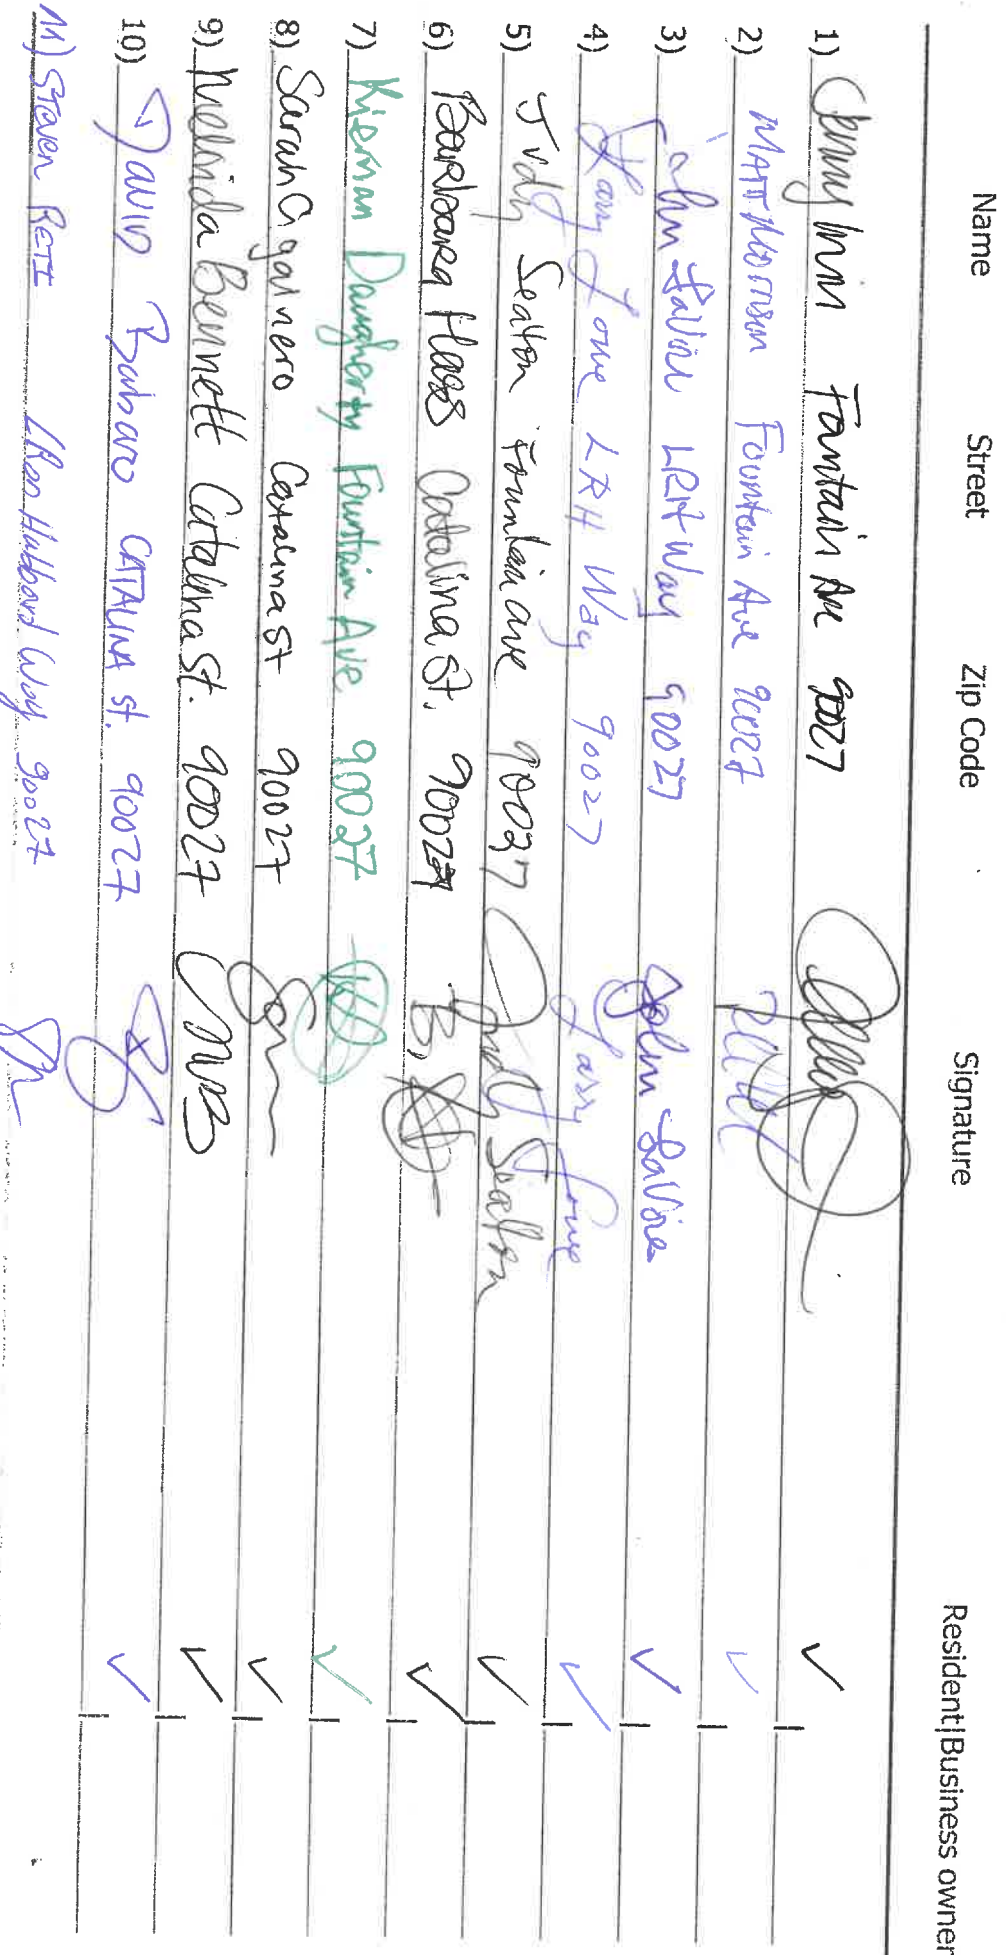 Name Street Zip Code Signature Resident|Business owner
1) Fountain Ave 90027 ✓
2) MATT Morrison Fountain Ave 90027 ✓
3) John LaVoie LRH Way 90027 John LaVoie ✓
4) LRH Way 90027 ✓
5) Judy Seaton Fountain ave 90027 Judy Seaton ✓
6) Barbara Hass Catalina St. 90027 ✓
7) Kiernan Daugherty Fountain Ave 90027 ✓
8) Sarah Catalina st 90027 ✓
9) Melinda Bennett Catalina St. 90027 ✓
10) DAVID Barbaro CATALINA st. 90027 ✓
11) STEVEN RETI LRon Hubbard Way 90027